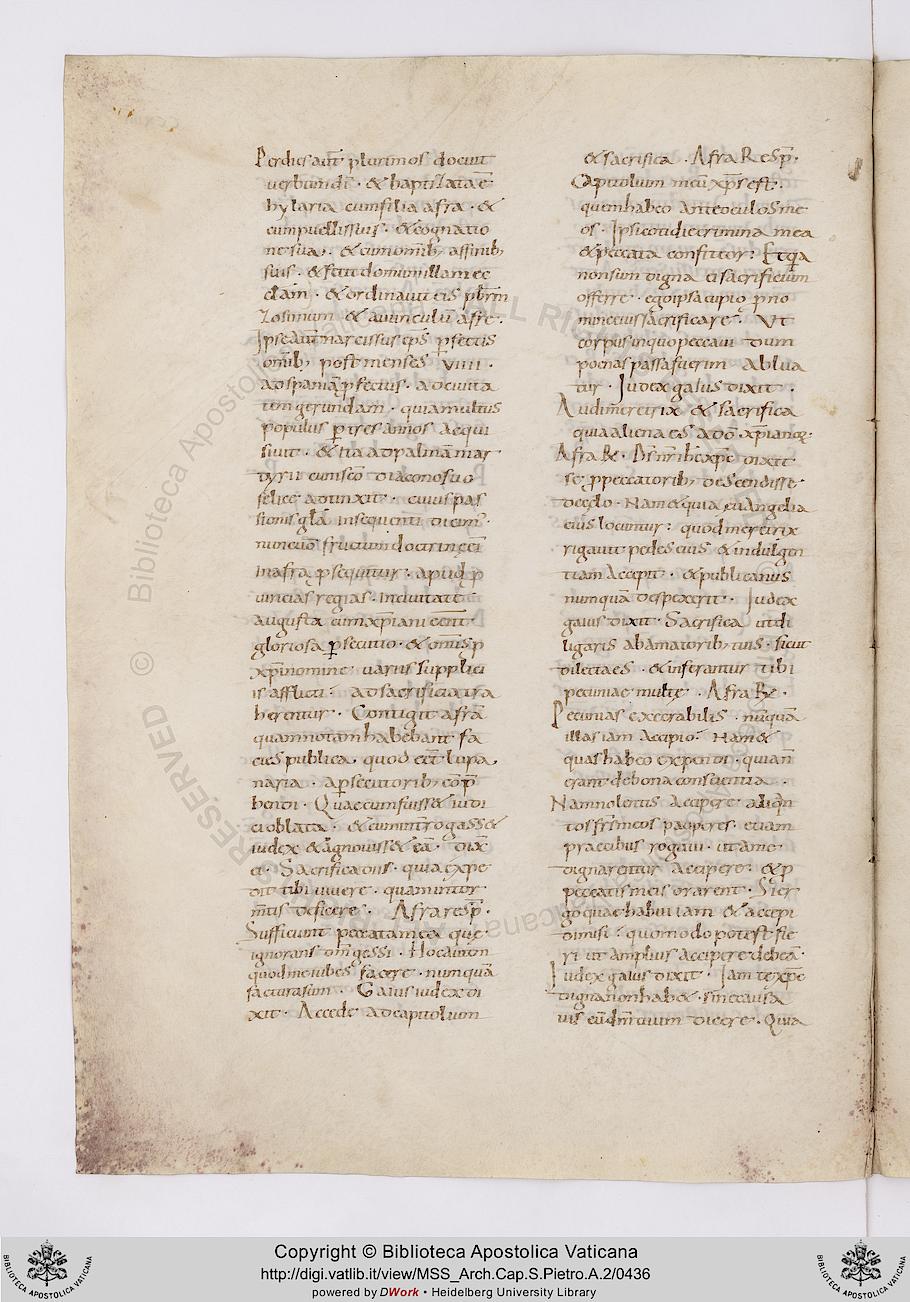 Perdies aut̄ plurimos docuit
uerbum dī · & baptizata ē
hylaria cum filia afra · &
cum puellis suis · & cognatio
ne sua · & cum omīb; affinib;
suis · & fecit domum illam ec
clām · & ordinauit eis p̄brm̄
Zosimum & auunculū afre ·
Ipse aūt narcissus ep̄s ꝑfectis
omīb; post menses VIIII ·
ad spaniā ꝓfectus · ad ciuita
tem gerundam · quia multus
populus ꝑ tres annos adqui
siuit · & ita ad palmā mar
tyrii cum sc̄o diacono suo
felice adunxit · cuius pas
sionis gl̄a insequenti die
nunc uō fructum doctrine ei
in afra ꝓsequitur · apud ꝓ
uincias regias · In ciuitate
augusta cum xp̄iani
gloriosa ꝑsecutio · & om̄s ꝓ
xp̄i nomine uariis supplici
is afflicti · ad sacrificia tra
herentur · Contigit afrā
quam notam habebant fa
cies publica · quod eēt lupa
naria · a ꝑsecutorib; cōp̄
hendi · Quae cum fuiss& iudi
ci oblata · & cum int̄rogass&
iudex & agnouiss& eā · dix̄
ei · Sacrifica diis · quia expe
dit tibi uiuere · quam in tor
m̄tis deficere · Afra resp̄ ·
Sufficiunt peccata mea que
ignorans dm̄ gessi · Hoc autem
quod me iubes facere · numquā
facturasum · Gaius iudex di
xit · Accede ad capitolium
& sacrifica · Afra Resp̄ ·
Capitolium meū xp̄s est ·
quem habeo ante oculos me
os · Ipsi cotidie crimina mea
& peccata confiteor : Et qa
non sum digna ei sacrificium
offerre · ego ipsa cupio ꝓ no
mine eius sacrificare · Vt
corpus in quo peccaui dum
poenas passa fuerim ablua
tur · Iudex gaius dixit ·
Audi meretrix & sacrifica
quia aliena es a dō xp̄ianor̄
Afra R̄ · Dn̄s xp̄c dixit
se ꝓ peccatorib; descendisse
de celo · Nam & quia euangelia
eius locuntur : quod meretrix
rigauit pedes eius & indulgen
tiam accepit · & publicanus
numquā despexerit · Iudex
gaius dixit · Sacrifica ut di
ligaris ab amatorib; tuis · sicut
dilecta es · & inferantur tibi
pecuniae multe · Afra R̄ ·
Pecunias execrabilis · nūquā
illas iam accipio · Nam &
quas habeo expendi · quia n̄
erant de bona conscientia ·
Nam nolentis accipere aliqn̄
tos fr̄s meos pauperes · etiam
praecibus rogaui · ut a me
dignarentur accipere · & ꝓ
peccatis meis orarent · Si er
go quae habui iam & accepi
dimisi : quomodo potest fie
ri ut amplius accipere debeā ·
Iudex gaius dixit · Iam te xp̄c
dignationem hab& · sine causa
uis eū dm̄ tuum dicere · Quia
Copyright © Biblioteca Apostolica Vaticana
http://digi.vatlib.it/view/MSS_Arch.Cap.S.Pietro.A.2/0436
powered by DWork • Heidelberg University Library